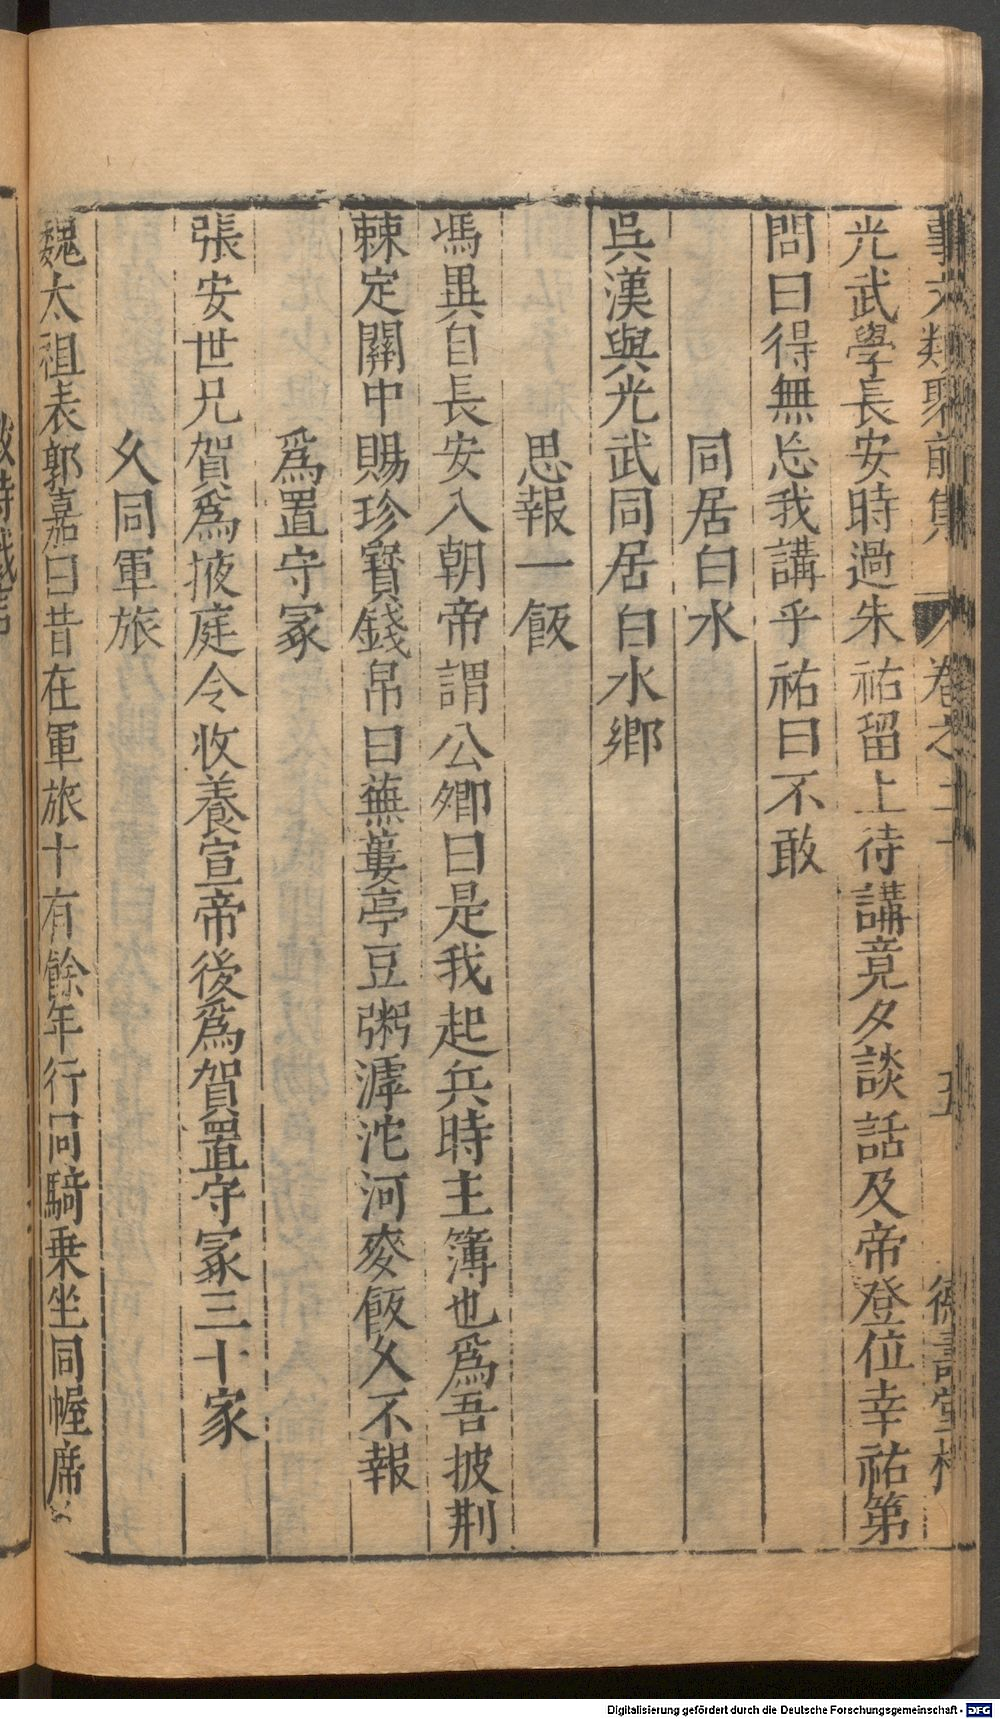 事文類聚前集 卷之二十 五 德壽堂梓
光武學長安時過朱祐留上待講竟夕談話及帝登位幸祐第
問曰得無忘我講乎祐曰不敢
同居白水
吳漢與光武同居白水鄉
思報一飯
馮異自長安入朝帝謂公卿曰是我起兵時主簿也爲吾披荆
棘定關中賜珍寳錢帛曰蕪蔞亭豆粥滹沱河麥飯久不報
爲置守冢
張安世兄賀爲掖庭令收養宣帝後爲賀置守冢三十家
久同軍旅
魏太祖表郭嘉曰昔在軍旅十有餘年行同騎乗坐同幄席
Digitalisierung gefördert durch die Deutsche Forschungsgemeinschaft - DFG